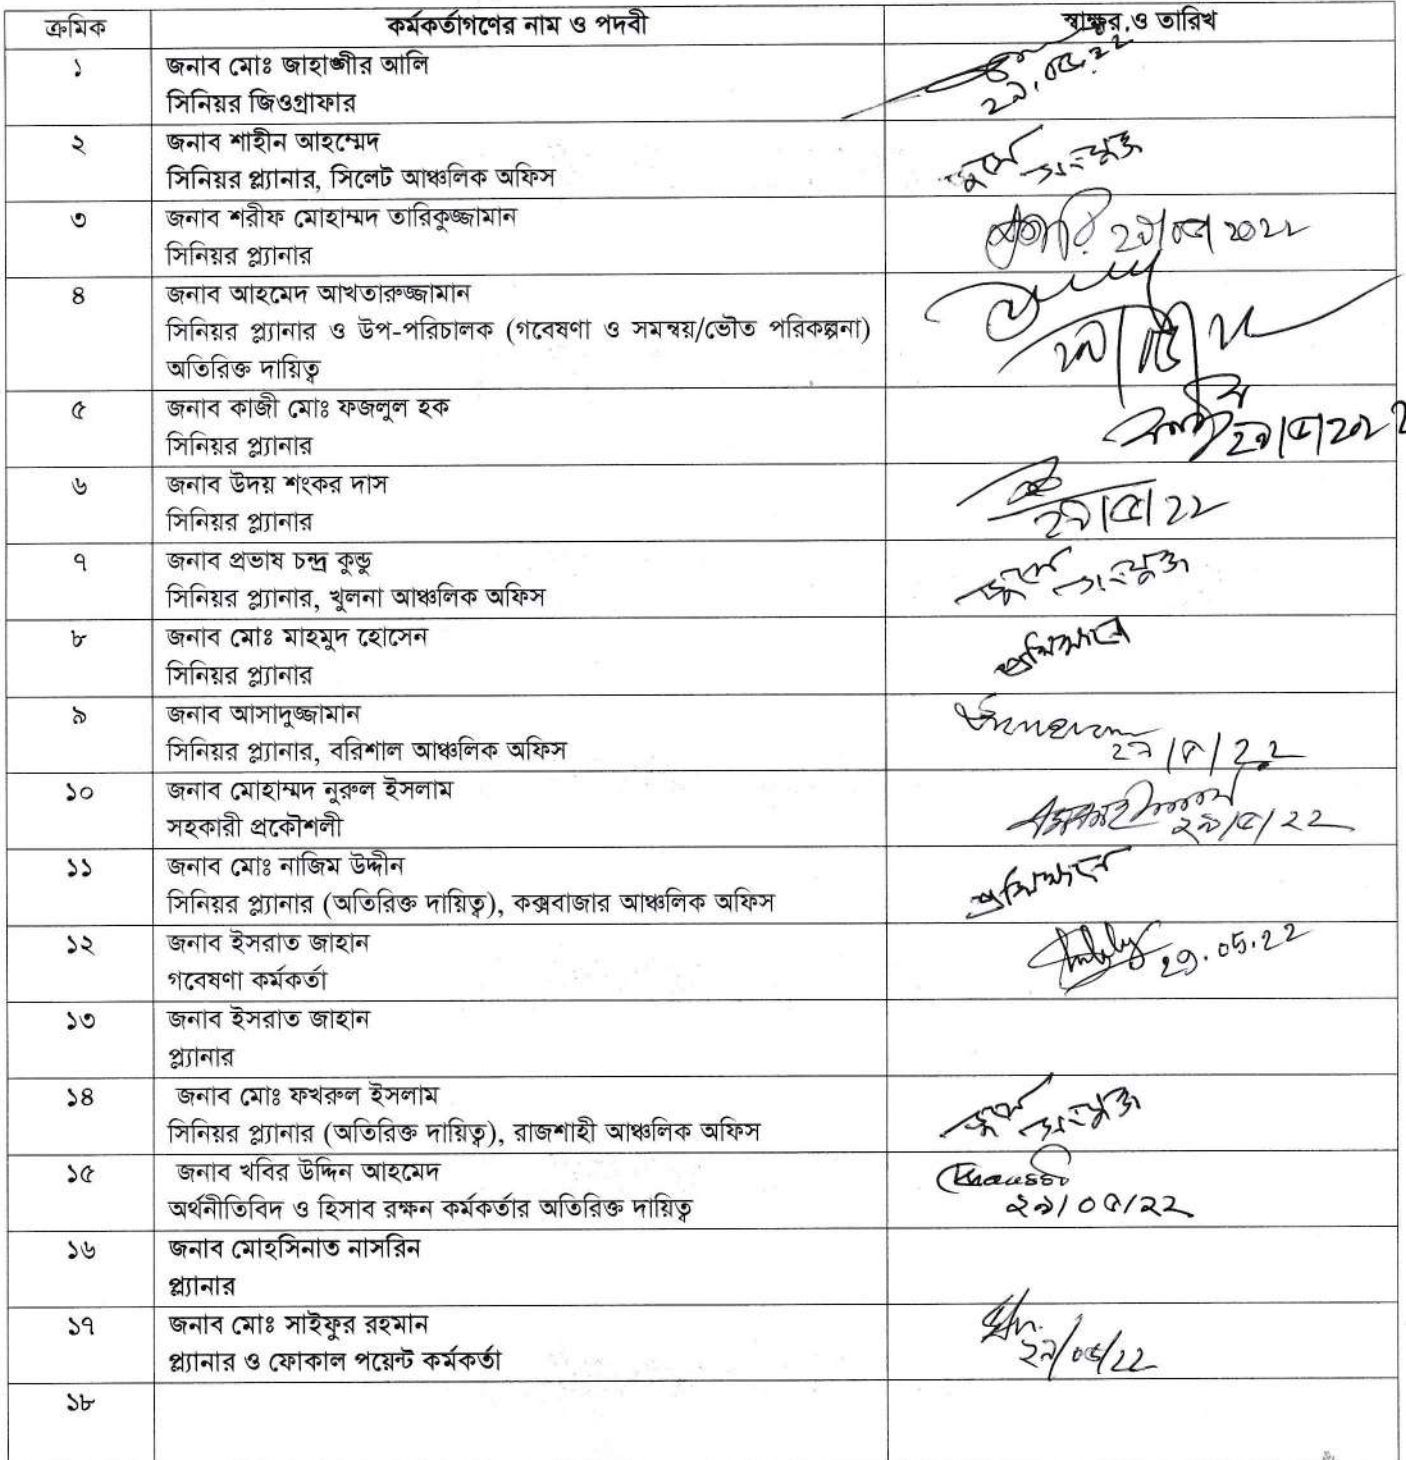 ক্রমিক কর্মকর্তাগণের নাম ও পদবী স্বাক্ষর ও তারিখ
১ জনাব মোঃ জাহাঙ্গীর আলি
সিনিয়র জিওগ্রাফার
২৯.০৫.২২
২ জনাব শাহীন আহম্মেদ
সিনিয়র প্ল্যানার, সিলেট আঞ্চলিক অফিস
জুমে সংযুক্ত
৩ জনাব শরীফ মোহাম্মদ তারিকুজ্জামান
সিনিয়র প্ল্যানার
২৯/০৫/২০২২
৪ জনাব আহমেদ আখতারুজ্জামান
সিনিয়র প্ল্যানার ও উপ-পরিচালক (গবেষণা ও সমন্বয়/ভৌত পরিকল্পনা)
অতিরিক্ত দায়িত্ব
২৯/৫/২২
৫ জনাব কাজী মোঃ ফজলুল হক
সিনিয়র প্ল্যানার
২৯/৫/২০২২
৬ জনাব উদয় শংকর দাস
সিনিয়র প্ল্যানার
২৯/৫/২২
৭ জনাব প্রভাষ চন্দ্র কুন্ডু
সিনিয়র প্ল্যানার, খুলনা আঞ্চলিক অফিস
জুমে সংযুক্ত
৮ জনাব মোঃ মাহমুদ হোসেন
সিনিয়র প্ল্যানার
প্রশিক্ষনে
৯ জনাব আসাদুজ্জামান
সিনিয়র প্ল্যানার, বরিশাল আঞ্চলিক অফিস
২৯/৫/২২
১০ জনাব মোহাম্মদ নুরুল ইসলাম
সহকারী প্রকৌশলী
২৯/৫/২২
১১ জনাব মোঃ নাজিম উদ্দীন
সিনিয়র প্ল্যানার (অতিরিক্ত দায়িত্ব), কক্সবাজার আঞ্চলিক অফিস
প্রশিক্ষনে
১২ জনাব ইসরাত জাহান
গবেষণা কর্মকর্তা
29.05.22
১৩ জনাব ইসরাত জাহান
প্ল্যানার
১৪ জনাব মোঃ ফখরুল ইসলাম
সিনিয়র প্ল্যানার (অতিরিক্ত দায়িত্ব), রাজশাহী আঞ্চলিক অফিস
জুমে সংযুক্ত
১৫ জনাব খবির উদ্দিন আহমেদ
অর্থনীতিবিদ ও হিসাব রক্ষন কর্মকর্তার অতিরিক্ত দায়িত্ব
২৯/০৫/২২
১৬ জনাব মোহসিনাত নাসরিন
প্ল্যানার
১৭ জনাব মোঃ সাইফুর রহমান
প্ল্যানার ও ফোকাল পয়েন্ট কর্মকর্তা
২৯/০৫/২২
১৮